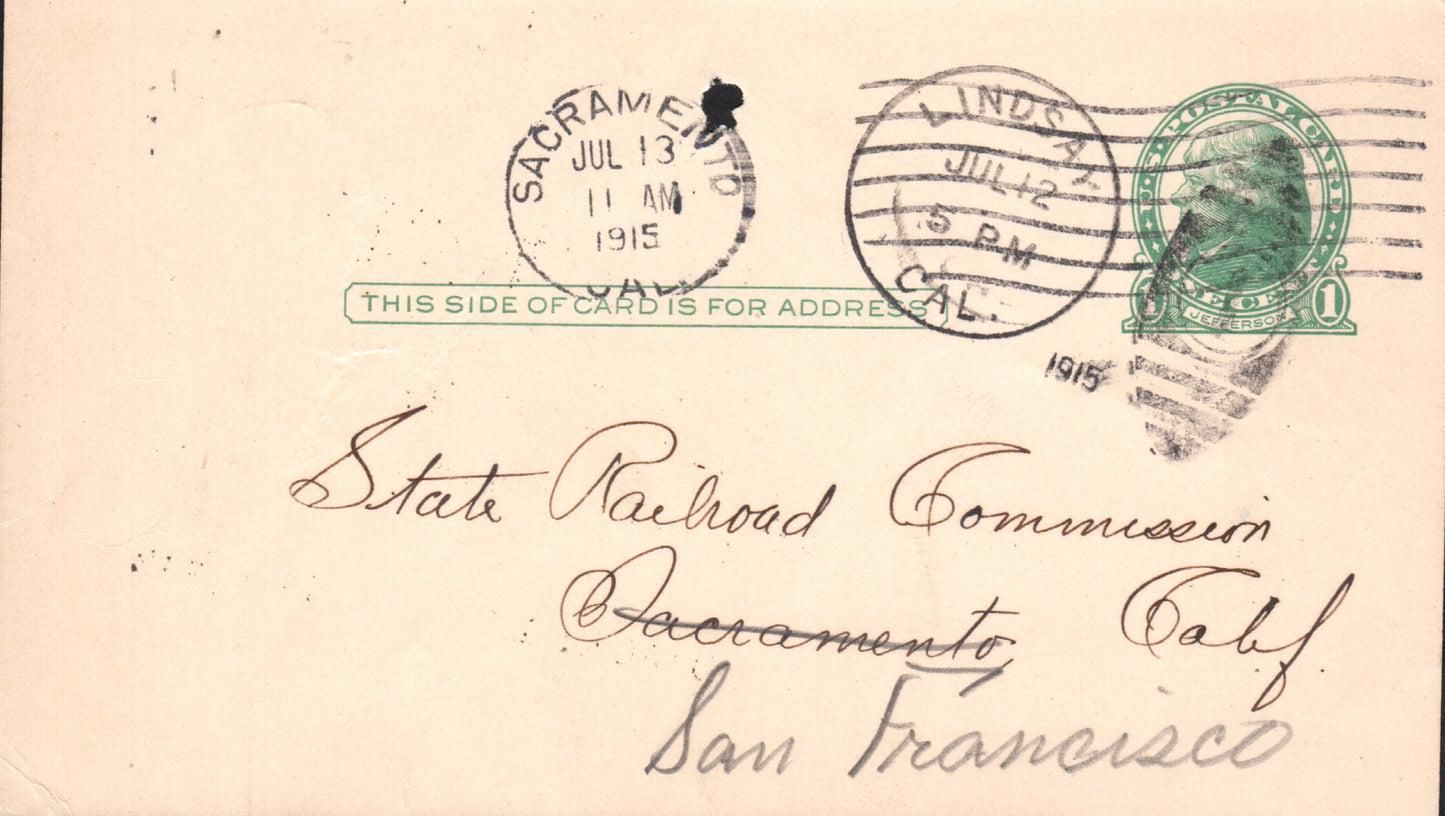 SACRAMENTO
JUL 13
11 AM
1915
CAL.
LINDSAY
JUL 12
5 PM
CAL.
1915
U.S. POSTAL CARD
1 1
JEFFERSON
THIS SIDE OF CARD IS FOR ADDRESS
State Railroad Commission
Sacramento, Calif
San Francisco